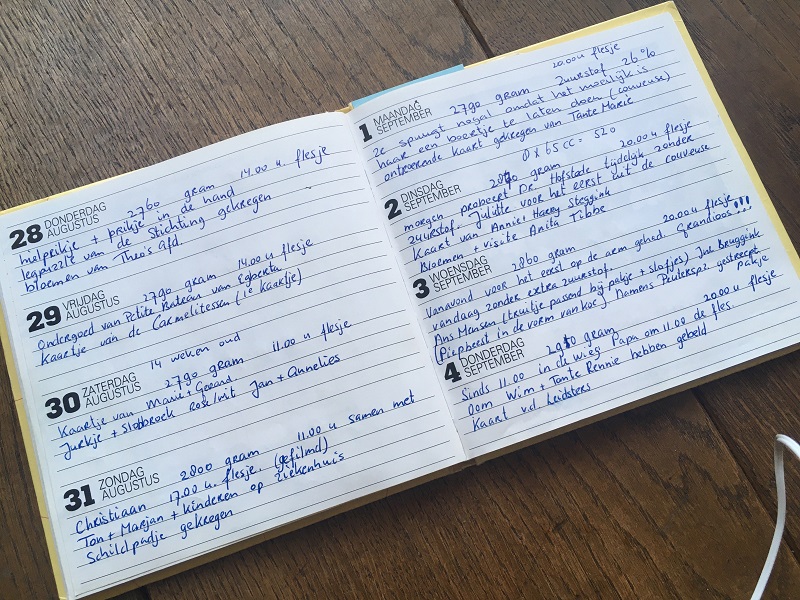 28 DONDERDAG
AUGUSTUS
2760 gram 14.00 u. flesje
hielprikje + prikje in de hand
legpuzzle van de Stichting gekregen
bloemen van Theo's afd.
29 VRIJDAG
AUGUSTUS
2790 gram 14.00 u flesje
Ondergoed van Petite Bateau van Egberta
Kaartje van de Carmelitessen (1e kaartje)
30 ZATERDAG
AUGUSTUS
14 weken oud
2790 gram 11.00 u flesje
Kaartje van Marie + Gerard
Jurkje + Slabbrock Rose/wit Jan + Annelies
31 ZONDAG
AUGUSTUS
2800 gram 11.00 u samen met
Christiaan 17.00 u. flesje. (gefilmd)
Ton + Marjan + kinderen op ziekenhuis
Schildpadje gekregen
20.00 u flesje
1 MAANDAG
SEPTEMBER
2790 gram Zuurstof 26%
Ze spuugt nogal omdat het moeilijk is
haar een boertje te laten doen (couveuse)
ontroerende kaart gekregen van Tante Marie
8 x 65 cc = 520
2 DINSDAG
SEPTEMBER
gram 20.00 u flesje
morgen probeert Dr. Hofstade tijdelijk zonder
zuurstof. Juliette voor het eerst uit de couveuse
Kaart van Annie + Harry Steggink
Bloemen + visite Anita Tibbe
3 WOENSDAG
SEPTEMBER
2860 gram 20.00 u flesje
Vanavond voor het eerst op de arm gehad. Grandioos!!!
vandaag zonder extra zuurstof.
Ans Mensen (truitje passend bij pakje + slofjes) Jnk Bruggink
(Piepbeest in de vorm van koe) Namens Peuterspz gestreept
pakje
4 DONDERDAG
SEPTEMBER
gram 20.00 u flesje
Sinds 11.00 in de wieg Papa om 11.00 de fles
Oom Wim + Tante Rennie hebben gebeld
Kaart v.d. Leidsters